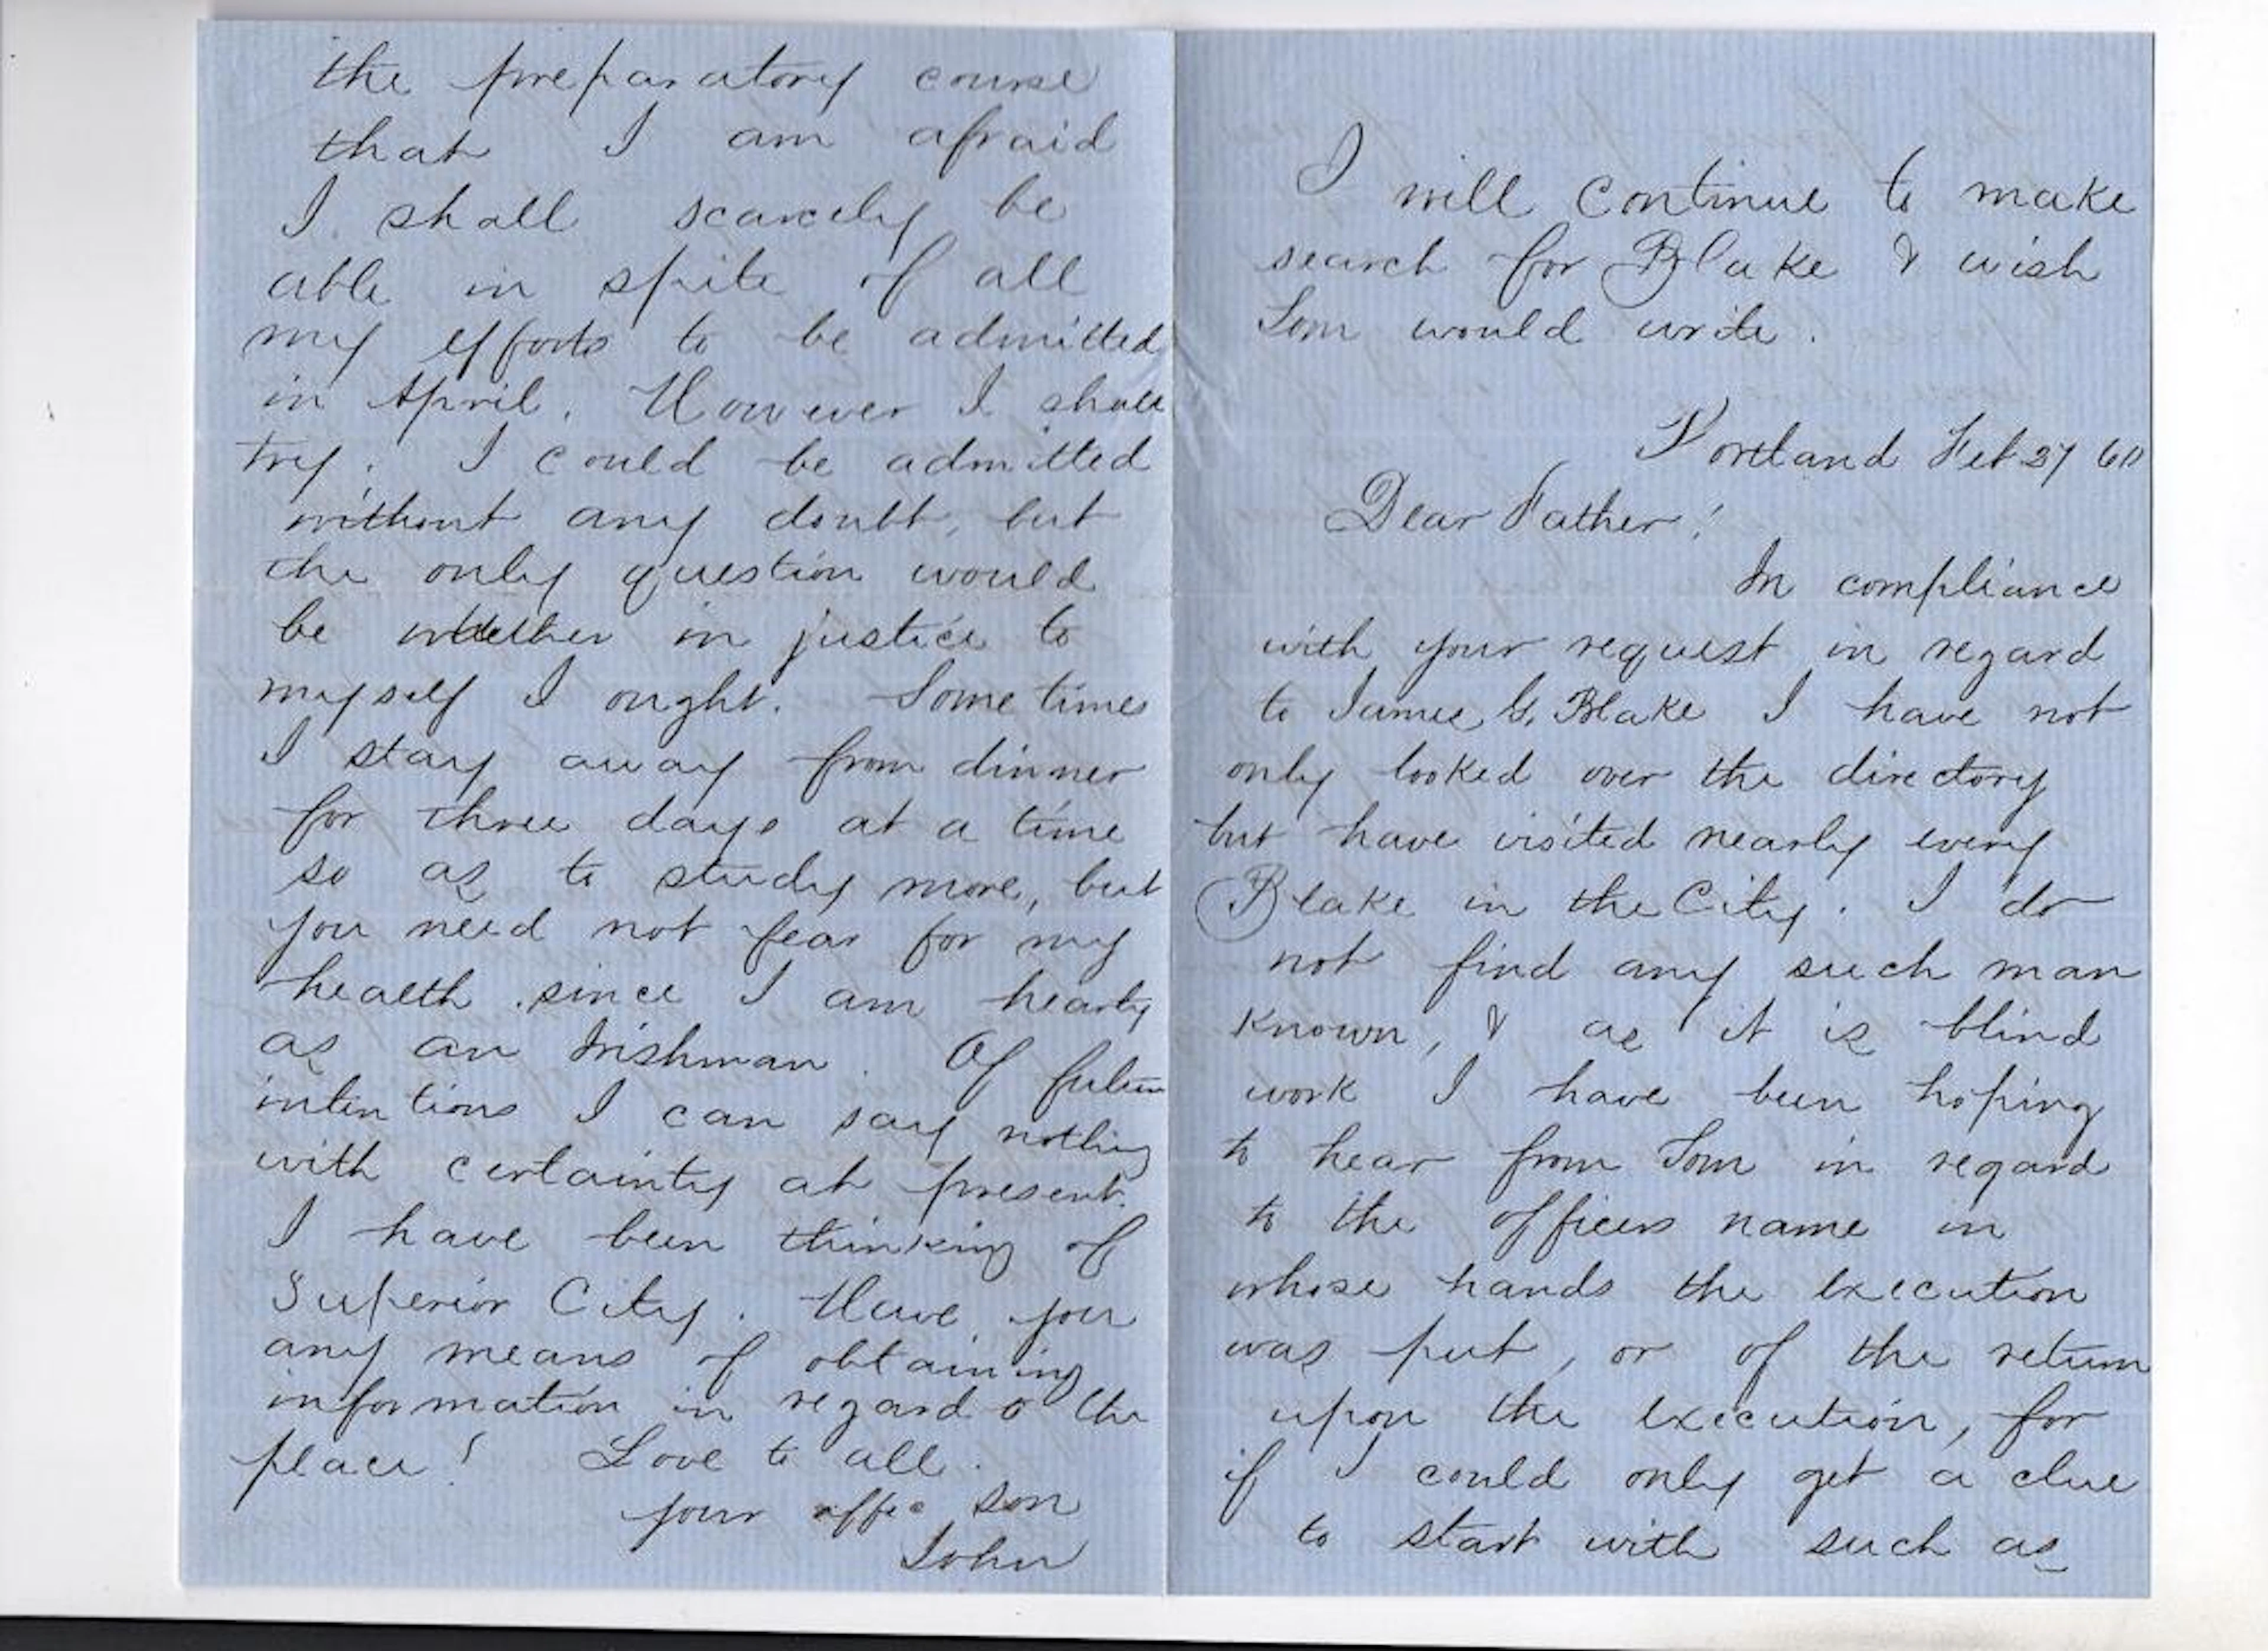 the preparatory course
that I am afraid
I shall scarcely be
able in spite of all
my efforts to be admitted
in April. However I shall
try. I could be admitted
without any doubt, but
the only question would
be whether in justice to
myself I ought. Some times
I stay away from dinner
for three days at a time
so as to study more, but
you need not fear for my
health since I am hearty
as an Irishman. Of future
intentions I can say nothing
with certainty at present.
I have been thinking of
Superior City. Have you
any means of obtaining
information in regard o the
place! Love to all.
your affec son
John
I will continue to make
search for Blake & wish
Tom would write.
Portland Feb 27 60
Dear Father!
In compliance
with your request in regard
to James G. Blake I have not
only looked over the directory
but have visited nearly every
Blake in the City. I do
not find any such man
known, & as it is blind
work I have been hoping
to hear from Tom in regard
to the officers name in
whose hands the execution
was put, or of the return
upon the execution, for
if I could only get a clue
to start with such as